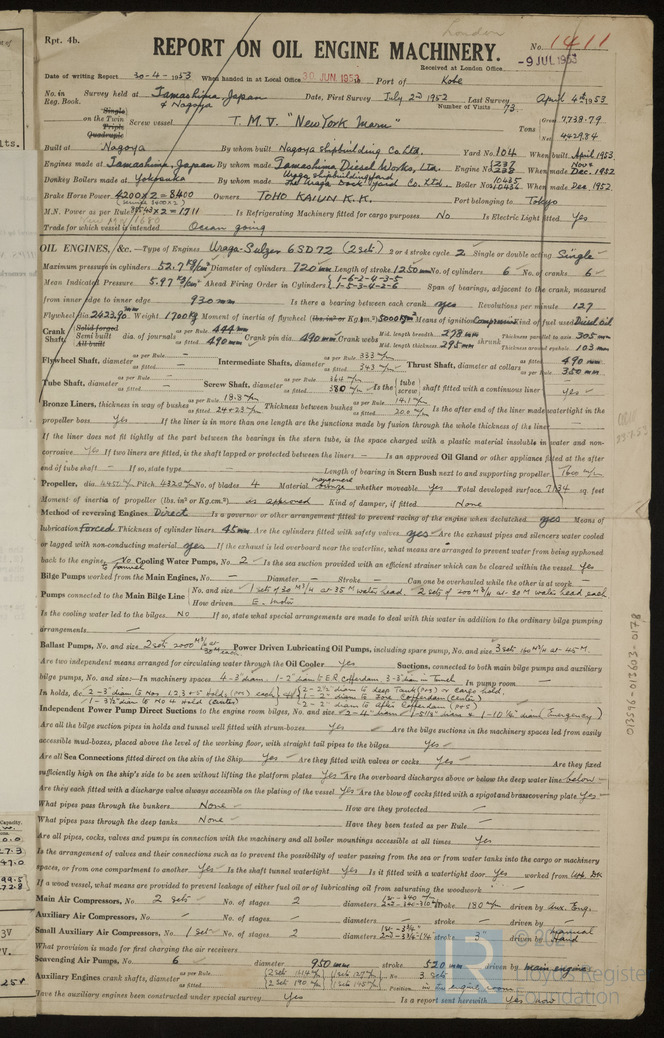 London
Rpt. 4b.
No. 1411
REPORT ON OIL ENGINE MACHINERY.
Received at London Office -9 JUL 1953
Date of writing Report 30-4-1953 When handed in at Local Office 30 JUN 1953 Port of Kobe
No. in Reg. Book. Survey held at Tamashima, Japan & Nagoya Date, First Survey July 2nd 1952 Last Survey April 4th 1953
Number of Visits 73
Single on the Twin Triple Quadruple Screw vessel T. M. V. "New York Maru" Tons Gross 7,738.79 Net 4429.84
Built at Nagoya By whom built Nagoya Shipbuilding Co Ltd. Yard No. 104 When built April 1953
Engines made at Tamashima, Japan By whom made Tamashima Diesel Works, Ltd. Engine No. 237 238 When made Nov & Dec. 1952
Donkey Boilers made at Yokosuka By whom made Uraga Shipbuilding Yard The Uraga Dock Yard Co. Ltd. Boiler No. 10435 10436 When made Dec 1952.
Brake Horse Power 4200 x 2 = 8400 Owners TOHO KAIUN K.K. Port belonging to Tokyo
M.N. Power as per Rule x 2 = 1711 Is Refrigerating Machinery fitted for cargo purposes No Is Electric Light fitted Yes
Trade for which vessel is intended Ocean going
OIL ENGINES, &c.—Type of Engines Uraga-Sulzer 6SD72 (2 sets) 2 or 4 stroke cycle 2 Single or double acting Single
Maximum pressure in cylinders 52.7 Kg/cm² Diameter of cylinders 720 mm Length of stroke 1250 mm No. of cylinders 6 No. of cranks 6
Mean Indicated Pressure 5.97 Kg/cm² Ahead Firing Order in Cylinders 1-6-2-4-3-5 1-5-3-4-2-6 Span of bearings, adjacent to the crank, measured
from inner edge to inner edge 930 mm Is there a bearing between each crank yes Revolutions per minute 127
Flywheel dia. 2423.90 mm Weight 1700 Kg Moment of inertia of flywheel (lbs. in² or Kg.cm²) 5000 Kgm² Means of ignition Compression Kind of fuel used Diesel oil
Crank Shaft, Solid forged Semi built All built dia. of journals as per Rule 444 mm as fitted 490 mm Crank pin dia. 490 mm Crank webs Mid. length breadth 278 mm Mid. length thickness 295 mm shrunk Thickness parallel to axis 305 mm Thickness around eyehole 103 mm
Flywheel Shaft, diameter as per Rule – as fitted – Intermediate Shafts, diameter as per Rule 333 m/m as fitted 343 m/m Thrust Shaft, diameter at collars as fitted 490 mm as per Rule 350 mm
Tube Shaft, diameter as per Rule – as fitted – Screw Shaft, diameter as per Rule 364 m/m as fitted 380 m/m Is the tube screw shaft fitted with a continuous liner yes
Bronze Liners, thickness in way of bushes as per Rule 18.8 m/m as fitted 24+23 m/m Thickness between bushes as per Rule 14.1 m/m as fitted 20.0 m/m Is the after end of the liner made watertight in the
propeller boss Yes If the liner is in more than one length are the junctions made by fusion through the whole thickness of the liner –
If the liner does not fit tightly at the part between the bearings in the stern tube, is the space charged with a plastic material insoluble in water and non-
corrosive Yes If two liners are fitted, is the shaft lapped or protected between the liners – Is an approved Oil Gland or other appliance fitted at the after
end of tube shaft – If so, state type – Length of bearing in Stern Bush next to and supporting propeller 1600 m/m
Propeller, dia. 4450 m/m Pitch 4320 m/m No. of blades 4 Material manganese bronze whether moveable yes Total developed surface 7.134 sq. feet
Moment of inertia of propeller (lbs. in² or Kg.cm²) is approved Kind of damper, if fitted None
Method of reversing Engines Direct Is a governor or other arrangement fitted to prevent racing of the engine when declutched yes Means of
lubrication Forced Thickness of cylinder liners 45 mm Are the cylinders fitted with safety valves yes Are the exhaust pipes and silencers water cooled
or lagged with non-conducting material yes If the exhaust is led overboard near the waterline, what means are arranged to prevent water from being syphoned
back to the engine to funnel Cooling Water Pumps, No. 2 Is the sea suction provided with an efficient strainer which can be cleared within the vessel Yes
Bilge Pumps worked from the Main Engines, No. – Diameter – Stroke – Can one be overhauled while the other is at work –
Pumps connected to the Main Bilge Line No. and size 1 set of 30 M³/H at 35 M water head. 2 sets of 200 M³/H at 30 M water head each
How driven E. motor
Is the cooling water led to the bilges No If so, state what special arrangements are made to deal with this water in addition to the ordinary bilge pumping
arrangements –
Ballast Pumps, No. and size 2 sets 200 M³/H at 30 M each Power Driven Lubricating Oil Pumps, including spare pump, No. and size 3 sets 160 M³/H at 45 M.
Are two independent means arranged for circulating water through the Oil Cooler Yes Suctions, connected to both main bilge pumps and auxiliary
bilge pumps, No. and size:—In machinery spaces 4-3" diam. 1-2" diam to E.R. Cofferdam 3-3" diam in Tunnel In pump room –
In holds, &c. 2-3" diam to Nos 1,2,3 & 5 Holds (P&S) each 2-2½" diam to deep Tank (P&S) or Cargo hold,
1-3½" diam to No 4 Hold (Center) 2-2" diam to after Cofferdam (P&S)
Independent Power Pump Direct Suctions to the engine room bilges, No. and size 2-4" diam 1-10½" diam (Emergency)
Are all the bilge suction pipes in holds and tunnel well fitted with strum-boxes Yes Are the bilge suctions in the machinery spaces led from easily
accessible mud-boxes, placed above the level of the working floor, with straight tail pipes to the bilges Yes
Are all Sea Connections fitted direct on the skin of the Ship Yes Are they fitted with valves or cocks Yes Are they fixed
sufficiently high on the ship's side to be seen without lifting the platform plates Yes Are the overboard discharges above or below the deep water line below
Are they each fitted with a discharge valve always accessible on the plating of the vessel Yes Are the blow off cocks fitted with a spigot and brass covering plate Yes
What pipes pass through the bunkers None How are they protected –
What pipes pass through the deep tanks None Have they been tested as per Rule –
Are all pipes, cocks, valves and pumps in connection with the machinery and all boiler mountings accessible at all times Yes
Is the arrangement of valves and their connections such as to prevent the possibility of water passing from the sea or from water tanks into the cargo or machinery
spaces, or from one compartment to another Yes Is the shaft tunnel watertight Yes Is it fitted with a watertight door Yes worked from Up. Dk
If a wood vessel, what means are provided to prevent leakage of either fuel oil or of lubricating oil from saturating the woodwork –
Main Air Compressors, No. 2 sets No. of stages 2 diameters stroke 180 m/m driven by Aux. Eng.
Auxiliary Air Compressors, No. – No. of stages – diameters – stroke – driven by –
Small Auxiliary Air Compressors, No. 1 set No. of stages 2 diameters stroke 3" driven by Manual Hand
What provision is made for first charging the air receivers
Scavenging Air Pumps, No. 6 diameter 950 mm stroke 520 mm driven by main engine
Auxiliary Engines crank shafts, diameter as per Rule as fitted 2 sets 190 m/m 1 set 145 m/m No. 3 sets Position in the engine room
Have the auxiliary engines been constructed under special survey Yes Is a report sent herewith Yes now
013596-013603-0178
© 2021 Lloyd's Register Foundation